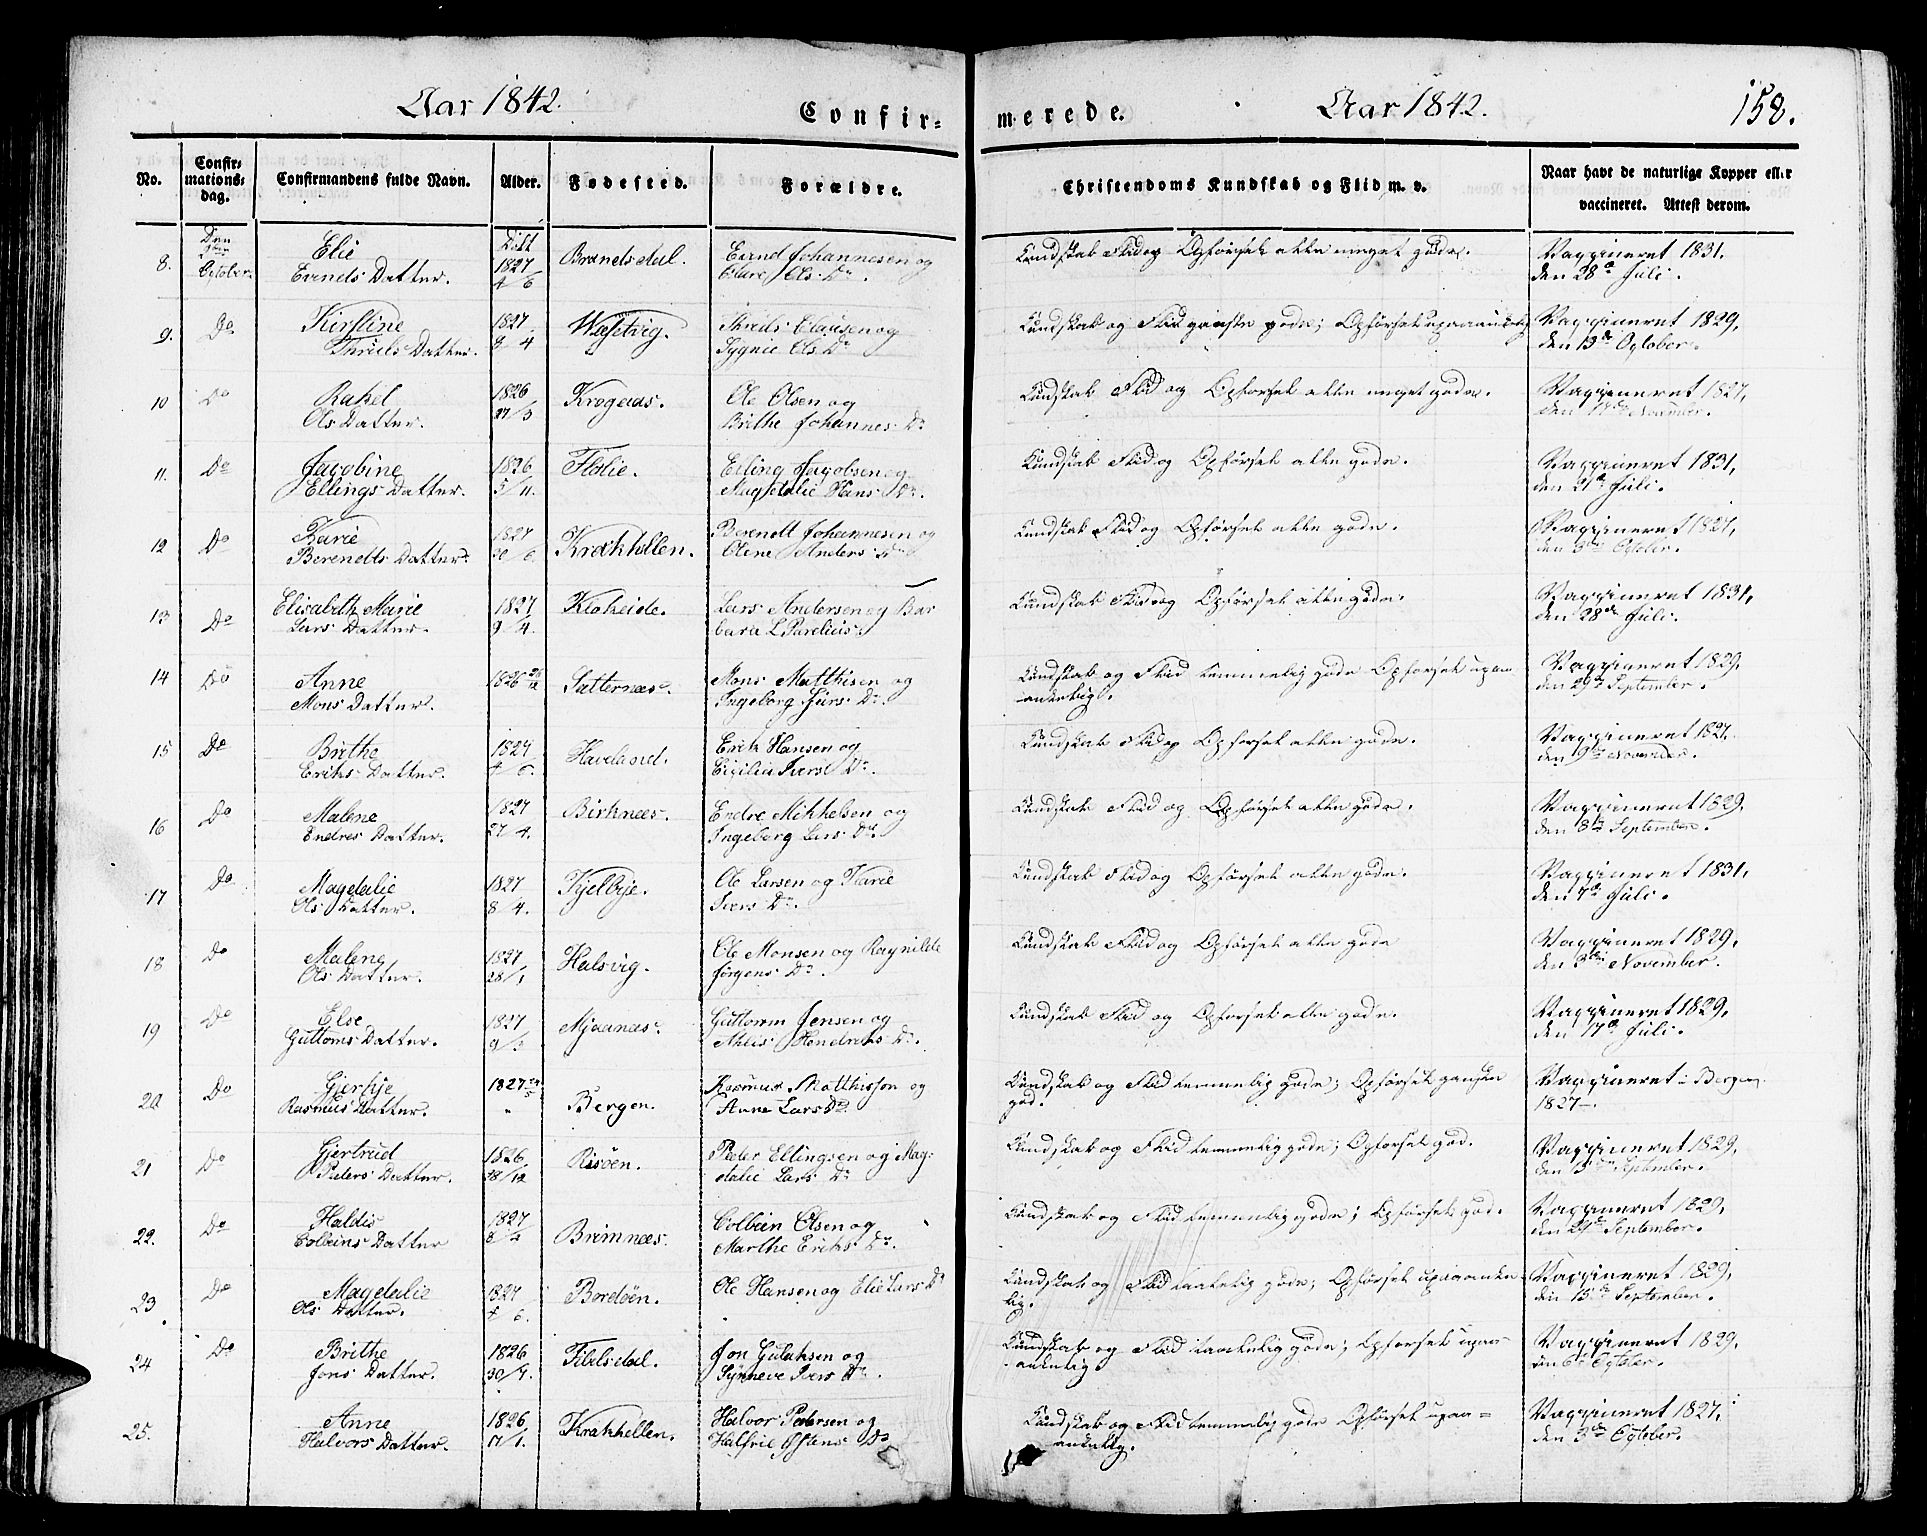 Aar 1842.
Confir-
merede.
Aar 1842.
158.
No.
Confir-
mations-
dag.
Confirmandens fulde Navn.
Alder.
Fødested.
Forældre.
Christendoms Kundskab og Flid m. v.
Naar havt de naturlige Kopper eller
vaccineret. Attest derom.
8.
Den
October
Elie
Evinds Datter.
Dibt
1827
4/6
Brandsdal.
Eivind Johannesen og
Ols Dr.
Kundskab Flid og Opførsel alle meget gode.
Vaccineret 1831,
den 28de Juli.
9.
Do
Kirstine
Thruls Datter.
1827
8 4
Wasetvig.
Thruls Clausen og
Sygnie Ols Dr
Kundskab og Flid ganske gode; Opførsel upaaankelig
Vaccineret 1829,
den 13de October.
10
Do
Rakel
Ols Datter.
1826
27/3
Krogaas.
Ole Olsen og
Brithe Johannes Dr
Kundskab Flid og Opførsel alle meget gode.
Vaccineret 1827,
den 17de November.
11.
Do
Jacobine
Ellings Datter.
1826
5/11.
Flolie.
Elling Jacobsen og
Magdalie Hans Dr.
Kundskab Flid og Opførsel alle gode.
Vaccineret 1831,
den 21de Juli.
12
Do
Karie
Berendts Datter.
1827
30/6.
Krakhellen.
Berendt Johannesen og
Olene Anders Dr
Kundskab Flid og Opførsel alle gode.
Vaccineret 1827,
den 3die October.
13
Do
Elisabeth Marie
Lars Datter.
1827
9/4.
Kloheide.
Lars Andersen og Bar
bara L Parelius.
Kundskab Flid og Opførsel alle gode.
Vaccineret 1831,
den 28de Juli.
14
Do
Anne
Mons Datter.
1826 28/12
Satternæs.
Mons Matthisen og
Ingeborg Sjurs Dr.
Kundskab og Flid temmelig gode Opførsel upaa
ankelig.
Vaccineret 1829,
den 29de September.
15
Do
Brithe
Eriks Datter.
1827
4 6.
Haveland.
Erik Hansen og
Cicilia Ivers Dr.
Kundskab Flid og Opførsel alle gode.
Vaccineret 1827.
den 19de November.
16
Do
Malene
Endres Datter.
1827
27 4.
Birknæs.
Endre Mikkelsen og
Ingeborg Lars Dr.
Kundskab Flid og Opførsel alle gode.
Vaccineret 1829,
den 8de September.
17
Do
Magdalie
Ols Datter.
1827
8/4.
Kjelbye.
Ole Larsen og Karie
Ivers Dr.
Kundskab Flid og Opførsel alle gode.
Vaccineret 1831,
den 7de Juli.
18
Do
Malene
Ols Datter.
1827.
28/1
Halsvig.
Ole Monsen og Ragnilde
Jørgens Dr.
Kundskab Flid og Opførsel alle gode
Vaccineret 1829,
den 3die November.
19
Do
Else
Guttoms Datter.
1827
9/3
Mjaanæs.
Guttorm Jensen og
Ahlis Hendriks Dr.
Kundskab Flid og Opførsel alle gode.
Vaccineret 1829,
den 17de Juli.
20
Do
Gjertje
Rasmus Datter.
1827
Bergen.
Rasmus Matthisson og
Anne Lars Dr
Kundskab og Flid temmelig gode; Opførsel ganske
god.
Vaccineret i Bergen
1827.
21
Do
Gjertrud
Peters Datter.
1826
28/12
Risøen.
Peter Ellingsen og Mag-
dalie Lars Dr
Kundskab og Flid temmelig gode; Opførsel god.
Vaccineret 1829,
den 15de September.
22.
Do
Haldis
Colbeins Datter
1827
8/2
Brimnæs.
Colbein Olsen og
Marthe Eriks Dr.
Kundskab og Flid temmelig gode; Opførsel god.
Vaccineret 1829,
den 29de September.
23.
Do
Magdalie
Ols Datter.
1827
4 6.
Bordøen.
Ole Hansen og Elie Lars Dr
Kundskab og Flid taalelig gode; Opførsel upaaanke
lig.
Vaccineret 1829,
den 15de September.
24
Do
Brithe
Jons Datter.
1826
30/7.
Fiblsdal.
Jon Gulaksen og
Synneve Ivers Dr.
Kundskab og Flid taalelig gode; Opførsel upaa
ankelig
Vaccineret 1829,
den 6te October.
25.
Anne
Halvors Datter.
1826
17/1.
Krakhellen.
Halvor Pedersen og
Halfrie Østens Dr
Kundskab og Flid temmelig gode Opførsel upaa-
ankelig.
Vaccineret 1827,
den 3die October.